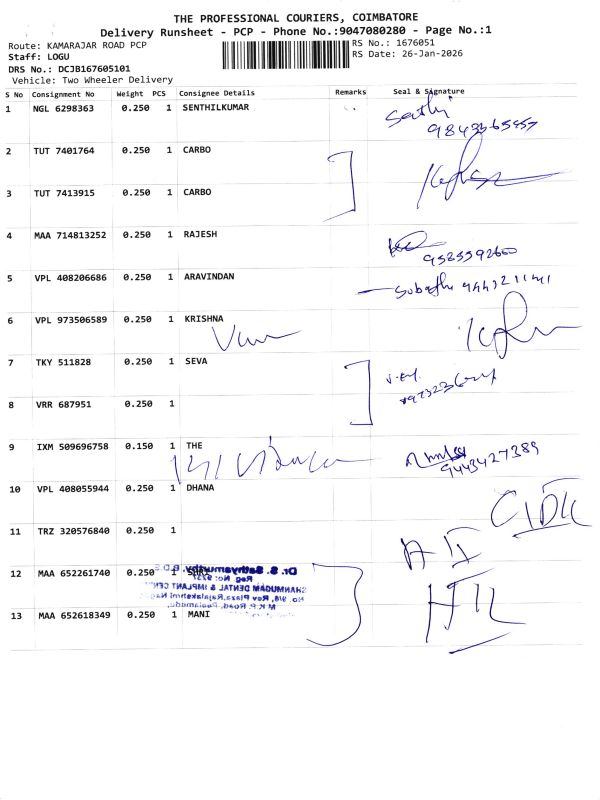 THE PROFESSIONAL COURIERS, COIMBATORE
Delivery Runsheet - PCP - Phone No.:9047080280 - Page No.:1
Route: KAMARAJAR ROAD PCP RS No.: 1676051
Staff: LOGU RS Date: 26-Jan-2026
DRS No.: DCJB167605101
Vehicle: Two Wheeler Delivery
S No Consignment No Weight PCS Consignee Details Remarks Seal & Signature
1 NGL 6298363 0.250 1 SENTHILKUMAR
2 TUT 7401764 0.250 1 CARBO
3 TUT 7413915 0.250 1 CARBO
4 MAA 714813252 0.250 1 RAJESH
5 VPL 408206686 0.250 1 ARAVINDAN
6 VPL 973506589 0.250 1 KRISHNA
7 TKY 511828 0.250 1 SEVA
8 VRR 687951 0.250 1
9 IXM 509696758 0.150 1 THE
9443427389
10 VPL 408055944 0.250 1 DHANA
11 TRZ 320576840 0.250 1
12 MAA 652261740 0.250 1
Dr. S. Sathyamurthy, B.D.S
SHANMUGAM DENTAL & IMPLANT
13 MAA 652618349 0.250 1 MANI